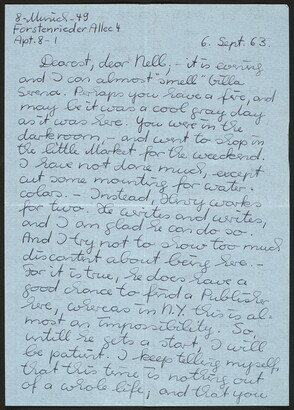 8-Munich-49
Forstenrieder Allee 4
Apt. 8-1
6. Sept. 63.
Dearest, dear Nell, - it is evening
and I can almost "smell" Villa
Serena. Perhaps you have a fire, and
may be it was a cool gray day
as it was here. You were in the
darkroom, - and went to shop in
the little Market for the weekend.
I have not done much, except
cut some mounting for water-
colors. - Instead, Henry works
for two. He writes and writes,
and I am glad he can do so.
And I try not to show too much
discontent about being here. -
For it is true, he does have a
good chance to find a Publisher
here, whereas in N.Y. this is al-
most an impossibility. So,
untill he gets a start, I will
be patient. I keep telling myself,
that this time is nothing out
of a whole life; and that you